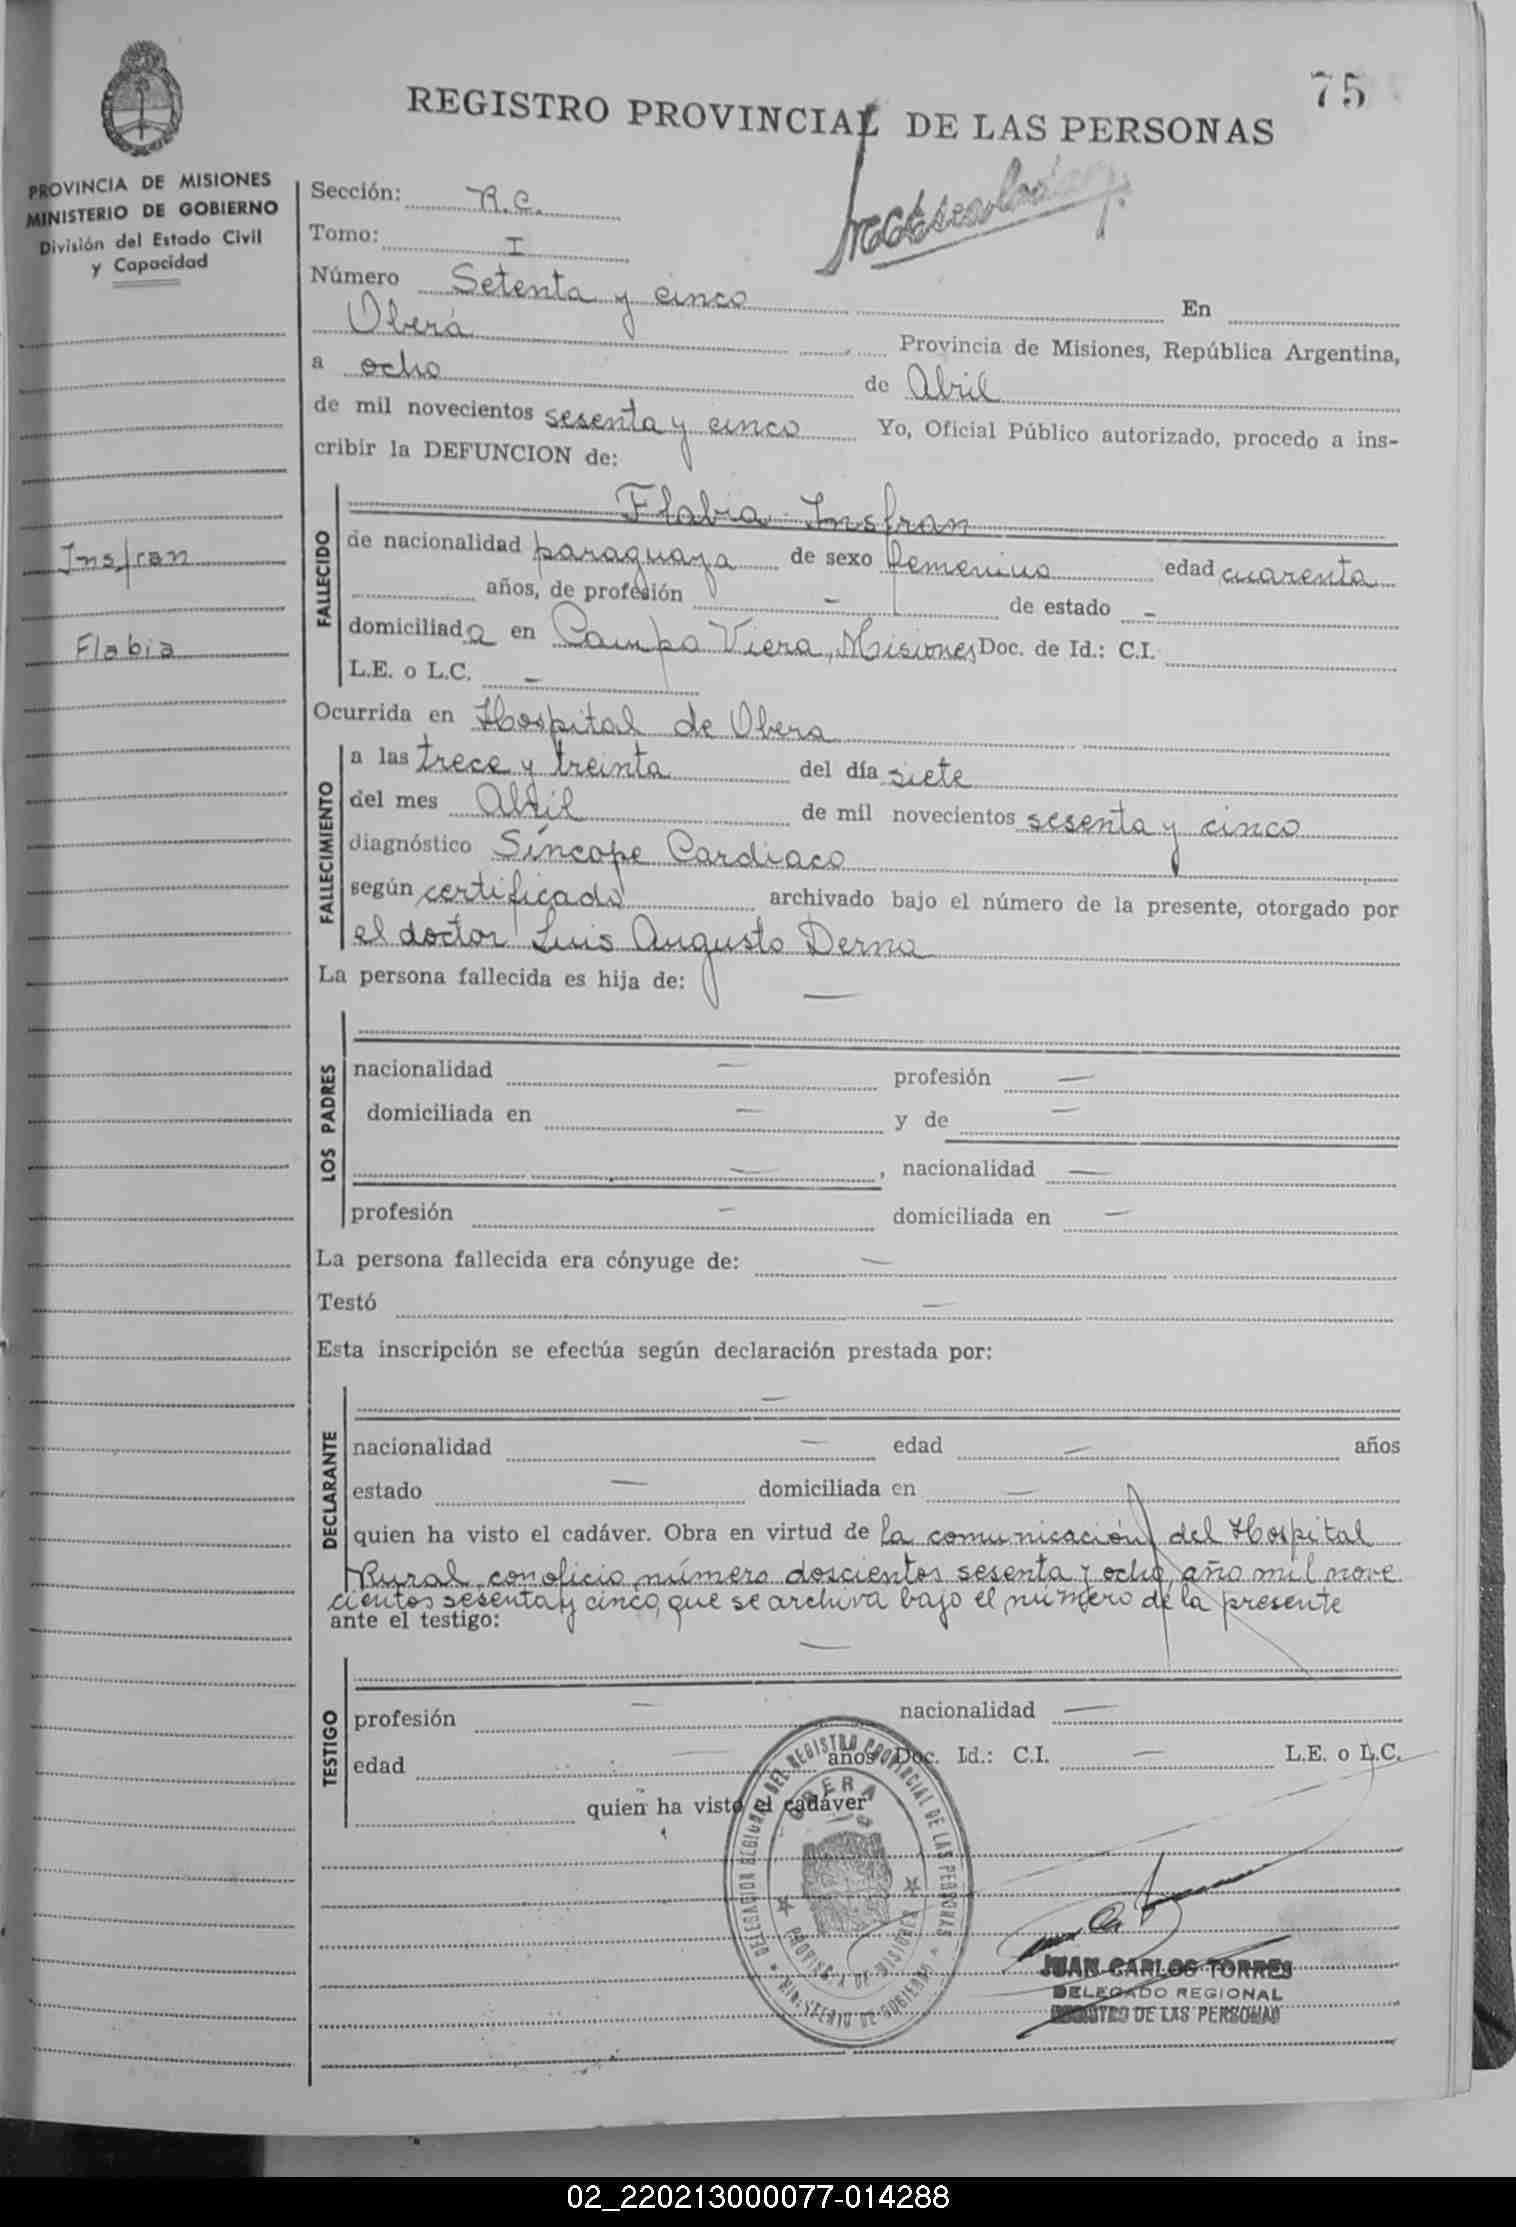 75
REGISTRO PROVINCIAL DE LAS PERSONAS
PROVINCIA DE MISIONES
MINISTERIO DE GOBIERNO
División del Estado Civil
y Capacidad
Insfran
Flabia
Sección: R.C.
Tomo: I
Número Setenta y cinco En
Oberá Provincia de Misiones, República Argentina,
a ocho de Abril
de mil novecientos sesenta y cinco Yo, Oficial Público autorizado, procedo a ins-
cribir la DEFUNCION de:
FALLECIDO
Flabia Insfran
de nacionalidad paraguaya de sexo femenino edad cuarenta
años, de profesión - de estado -
domiciliada en Campo Viera, Misiones Doc. de Id.: C.I.
L.E. o L.C. -
Ocurrida en Hospital de Obera
FALLECIMIENTO
a las trece y treinta del día siete
del mes Abril de mil novecientos sesenta y cinco
diagnóstico Síncope Cardiaco
según certificado archivado bajo el número de la presente, otorgado por
el doctor Luis Augusto Derna
La persona fallecida es hija de: —
LOS PADRES
nacionalidad — profesión —
domiciliada en — y de —
—, nacionalidad —
profesión — domiciliada en —
La persona fallecida era cónyuge de: —
Testó —
Esta inscripción se efectúa según declaración prestada por:
DECLARANTE
—
nacionalidad — edad — años
estado — domiciliada en —
quien ha visto el cadáver. Obra en virtud de la comunicación del Hospital
Rural, con oficio número doscientos sesenta y ocho, año mil nove
cientos sesenta y cinco, que se archiva bajo el número de la presente
ante el testigo: —
TESTIGO
profesión — nacionalidad —
edad — años Doc. Id.: C.I. — L.E. o L.C.
quien ha visto el cadáver
DELEGACION REGIONAL DEL REGISTRO PROVINCIAL DE LAS PERSONAS
OBERA
PROVINCIA DE MISIONES
MINISTERIO DE GOBIERNO
JUAN CARLOS TORRES
DELEGADO REGIONAL
REGISTRO DE LAS PERSONAS
02_220213000077-014288